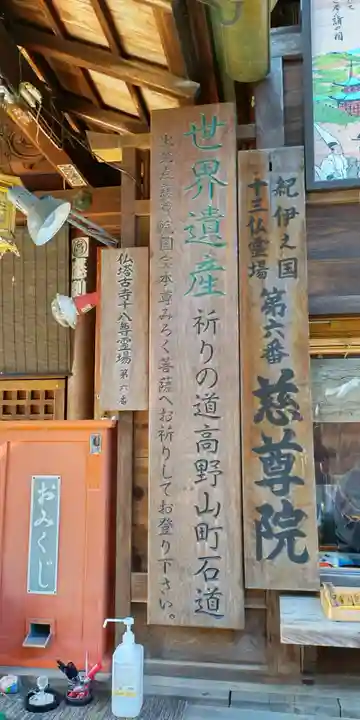 紀伊之国
十三仏霊場 第六番 慈尊院
世界遺産 祈りの道 高野山町石道
国宝本尊みろく菩薩へお祈りしてお登り下さい。
仏塔古寺十八尊霊場 第六番
おみくじ